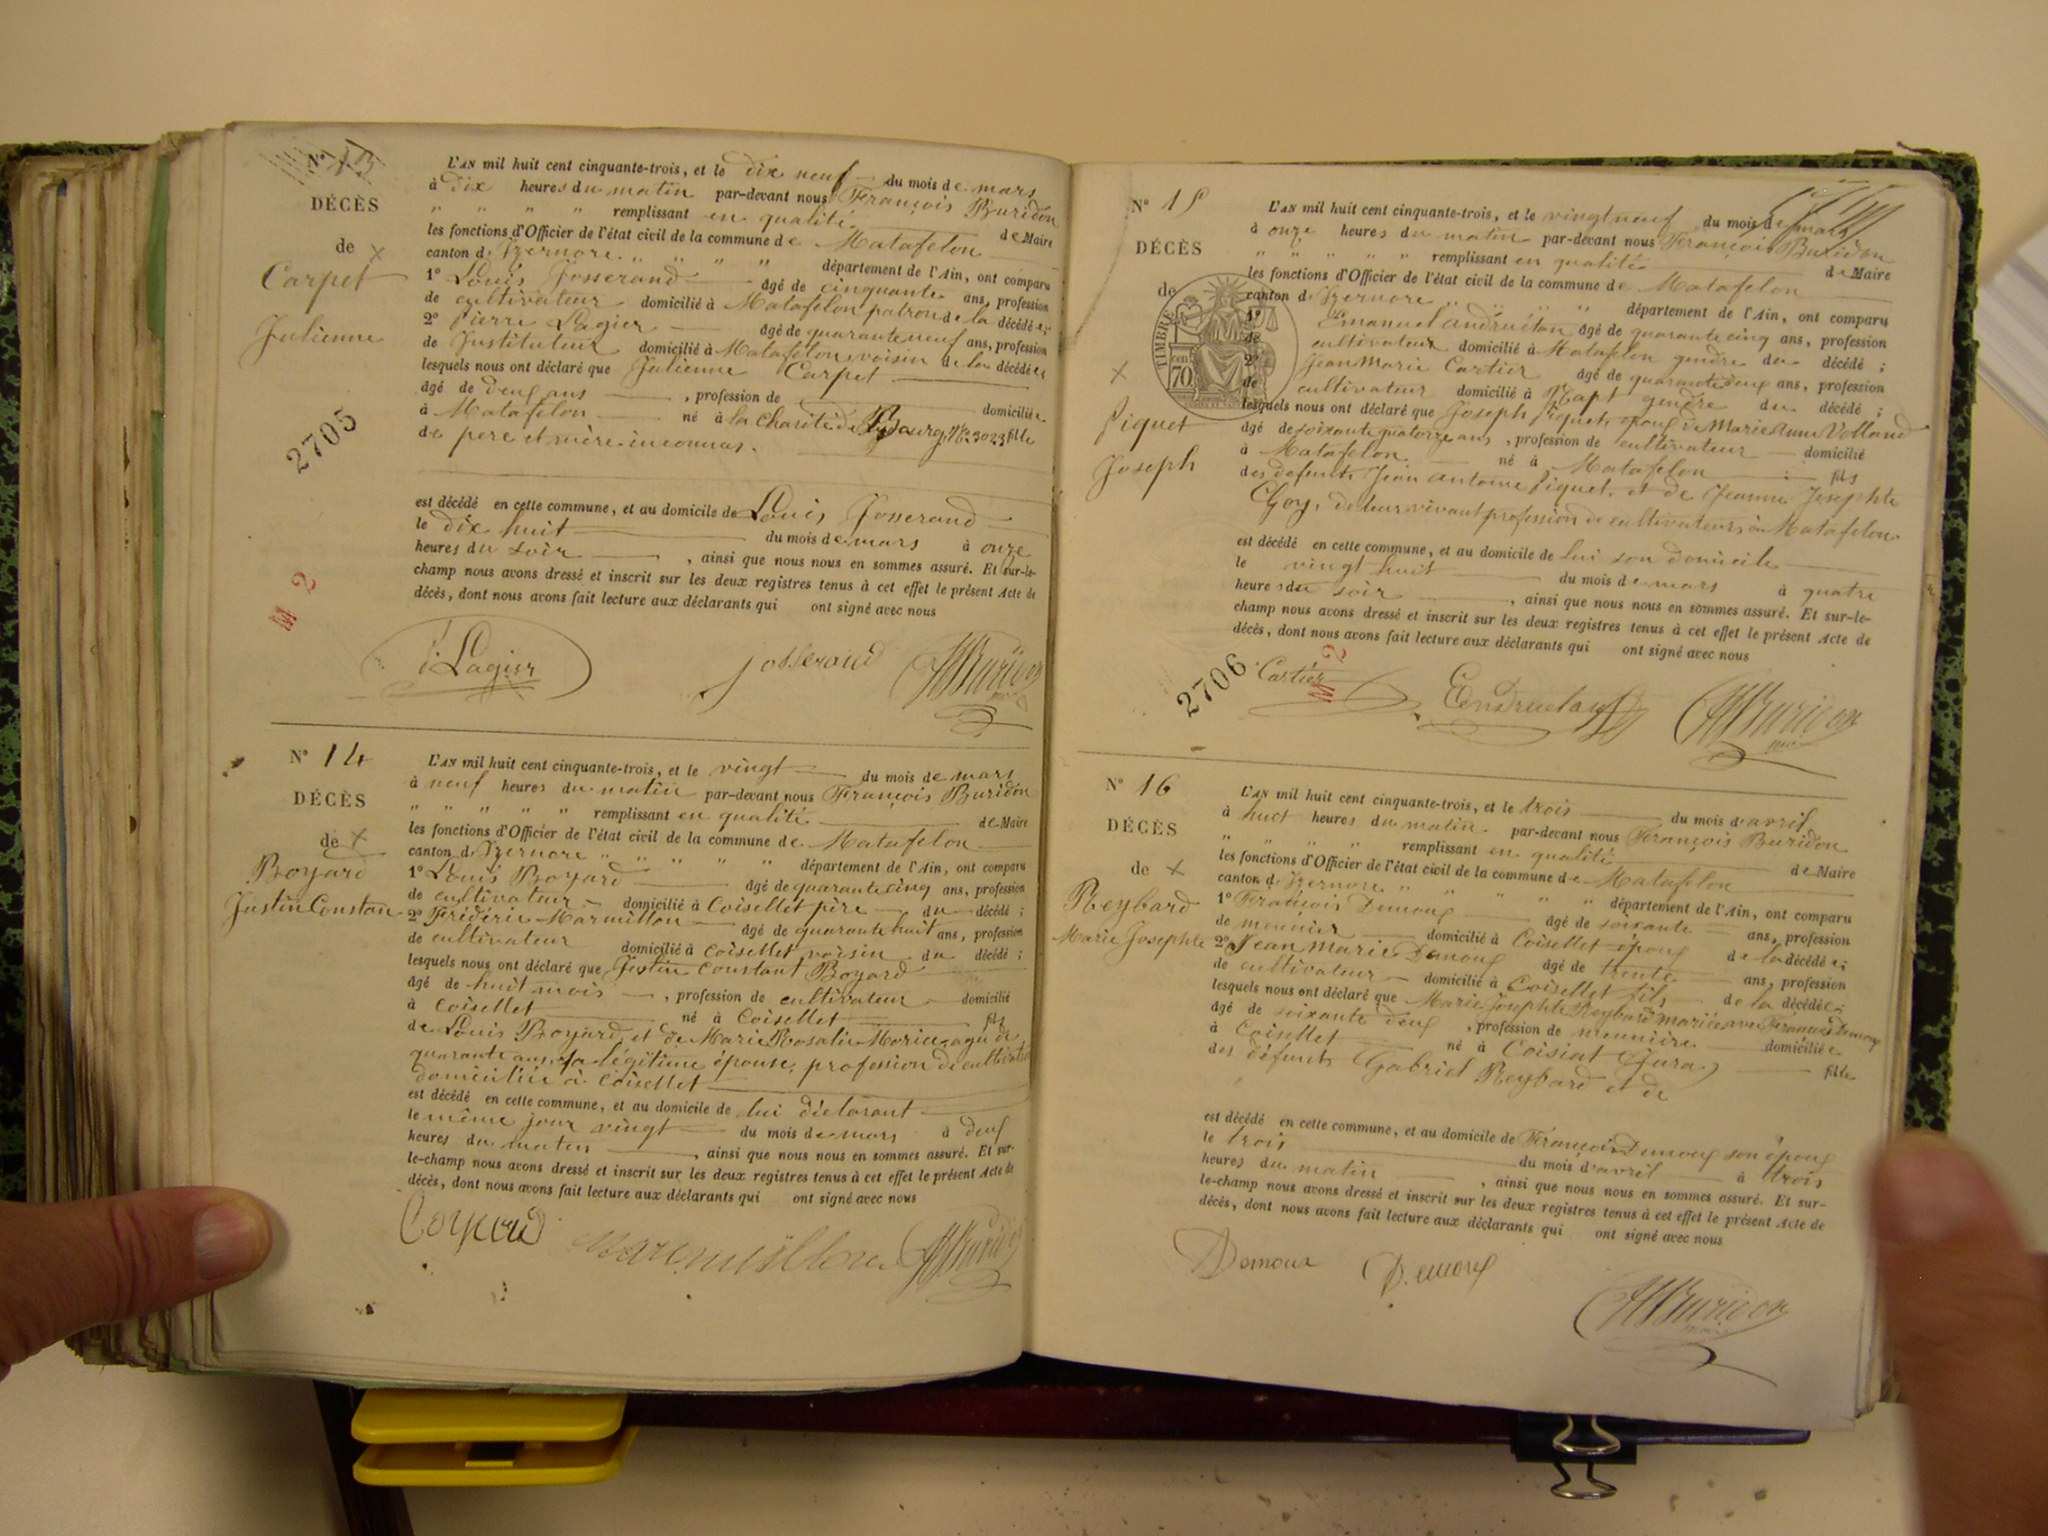 N° 13
DÉCÈS
de
Carpet
Julienne
2705
M 2
L'AN mil huit cent cinquante-trois, et le dix neuf du mois de mars
à dix heures du matin par-devant nous François Buridon
" " " " remplissant en qualité de Maire
les fonctions d'Officier de l'état civil de la commune de Matafelon
canton d'Izernore " " " " département de l'Ain, ont comparu
1° Louis Josserand âgé de cinquante ans, profession
de cultivateur domicilié à Matafelon patron de la décédée;
2° Pierre Lagier âgé de quarante neuf ans, profession
de Instituteur domicilié à Matafelon voisin de la décédée
lesquels nous ont déclaré que Julienne Carpet
âgé de deux ans , profession de domiciliée
à Matafelon né à la charité de Bourg, N° 3023 fille
de père et mère inconnus.
est décédé en cette commune, et au domicile de Louis Josserand
le dix huit du mois de mars à onze
heures du soir , ainsi que nous nous en sommes assuré. Et sur-le-
champ nous avons dressé et inscrit sur les deux registres tenus à cet effet le présent Acte de
décès, dont nous avons fait lecture aux déclarants qui ont signé avec nous
Lagier Josserand Buridon
N° 14
DÉCÈS
de
Boyard
Justin Constan
L'AN mil huit cent cinquante-trois, et le vingt du mois de mars
à neuf heures du matin par-devant nous François Buridon
" " " " " remplissant en qualité de Maire
les fonctions d'Officier de l'état civil de la commune de Matafelon
canton d'Izernore " " " " " département de l'Ain, ont comparu
1° Louis Boyard âgé de quarante cinq ans, profession
de cultivateur domicilié à Coisellet père du décédé;
2° Frédéric Marmillon âgé de quarante huit ans, profession
de cultivateur domicilié à Coisellet voisin du décédé;
lesquels nous ont déclaré que Justin Constant Boyard
âgé de huit mois , profession de cultivateur domicilié
à Coisellet né à Coisellet fils
de Louis Boyard et de Marie Rosalie Morice, agée de
quarante ans, sa légitime épouse, profession de cultivatrice
domiciliée à Coisellet
est décédé en cette commune, et au domicile de lui déclarant
le même jour vingt du mois de mars à deux
heures du matin , ainsi que nous nous en sommes assuré. Et sur-
le-champ nous avons dressé et inscrit sur les deux registres tenus à cet effet le présent Acte de
décès, dont nous avons fait lecture aux déclarants qui ont signé avec nous
Marmillon Buridon
N° 15
DÉCÈS
de
TIMBRE
70
Piquet
Joseph
L'AN mil huit cent cinquante-trois, et le vingt neuf du mois de mars
à onze heures du matin par-devant nous François Buridon
" " " " " remplissant en qualité de Maire
les fonctions d'Officier de l'état civil de la commune de Matafelon
canton d'Izernore " " " " département de l'Ain, ont comparu
1° Emanuel Andruétan âgé de quarante cinq ans, profession
de cultivateur domicilié à Matafelon gendre du décédé;
2° Jean Marie Cartier âgé de quarante deux ans, profession
de cultivateur domicilié à Napt gendre du décédé;
lesquels nous ont déclaré que Joseph Piquet, époux de Marie Anne Volland
âgé de soixante quatorze ans, profession de cultivateur domicilié
à Matafelon né à Matafelon fils
des défunts Jean Antoine Piquet, et de Jeanne Josephte
Goy, de leur vivant profession de cultivateurs, à Matafelon.
est décédé en cette commune, et au domicile de lui son domicile
le vingt huit du mois de mars à quatre
heures du soir , ainsi que nous nous en sommes assuré. Et sur-le-
champ nous avons dressé et inscrit sur les deux registres tenus à cet effet le présent Acte de
décès, dont nous avons fait lecture aux déclarants qui ont signé avec nous
2706 Cartier M 2 Buridon
N° 16
DÉCÈS
de
Reybard
Marie Josephte
L'AN mil huit cent cinquante-trois, et le trois du mois d'avril
à huit heures du matin par-devant nous François Buridon
" " " " remplissant en qualité de Maire
les fonctions d'Officier de l'état civil de la commune de Matafelon
canton d'Izernore " " " " " département de l'Ain, ont comparu
1° François Demoux âgé de soixante ans, profession
de meunier domicilié à Coisellet époux de la décédée;
2° Jean Marie Demoux âgé de trente ans, profession
de cultivateur domicilié à Coisellet fils de la décédée;
lesquels nous ont déclaré que Marie Josephte Reybard mariée avec François Demoux
âgé de soixante deux , profession de meunière domiciliée
à Coisellet né à Coisiat (Jura) fille
des défunts Gabriel Reybard et de
est décédé en cette commune, et au domicile de François Demoux son époux
le trois du mois d'avril à trois
heures du matin , ainsi que nous nous en sommes assuré. Et sur-
le-champ nous avons dressé et inscrit sur les deux registres tenus à cet effet le présent Acte de
décès, dont nous avons fait lecture aux déclarants qui ont signé avec nous
Demoux Demoux
Buridon